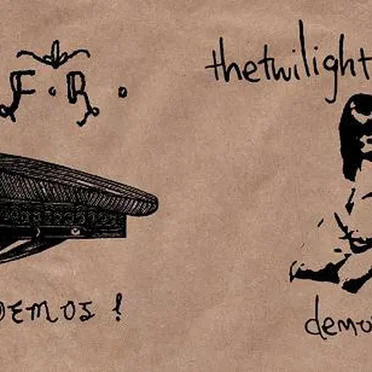 F.R.
thetwilight
DEMOS!
demo